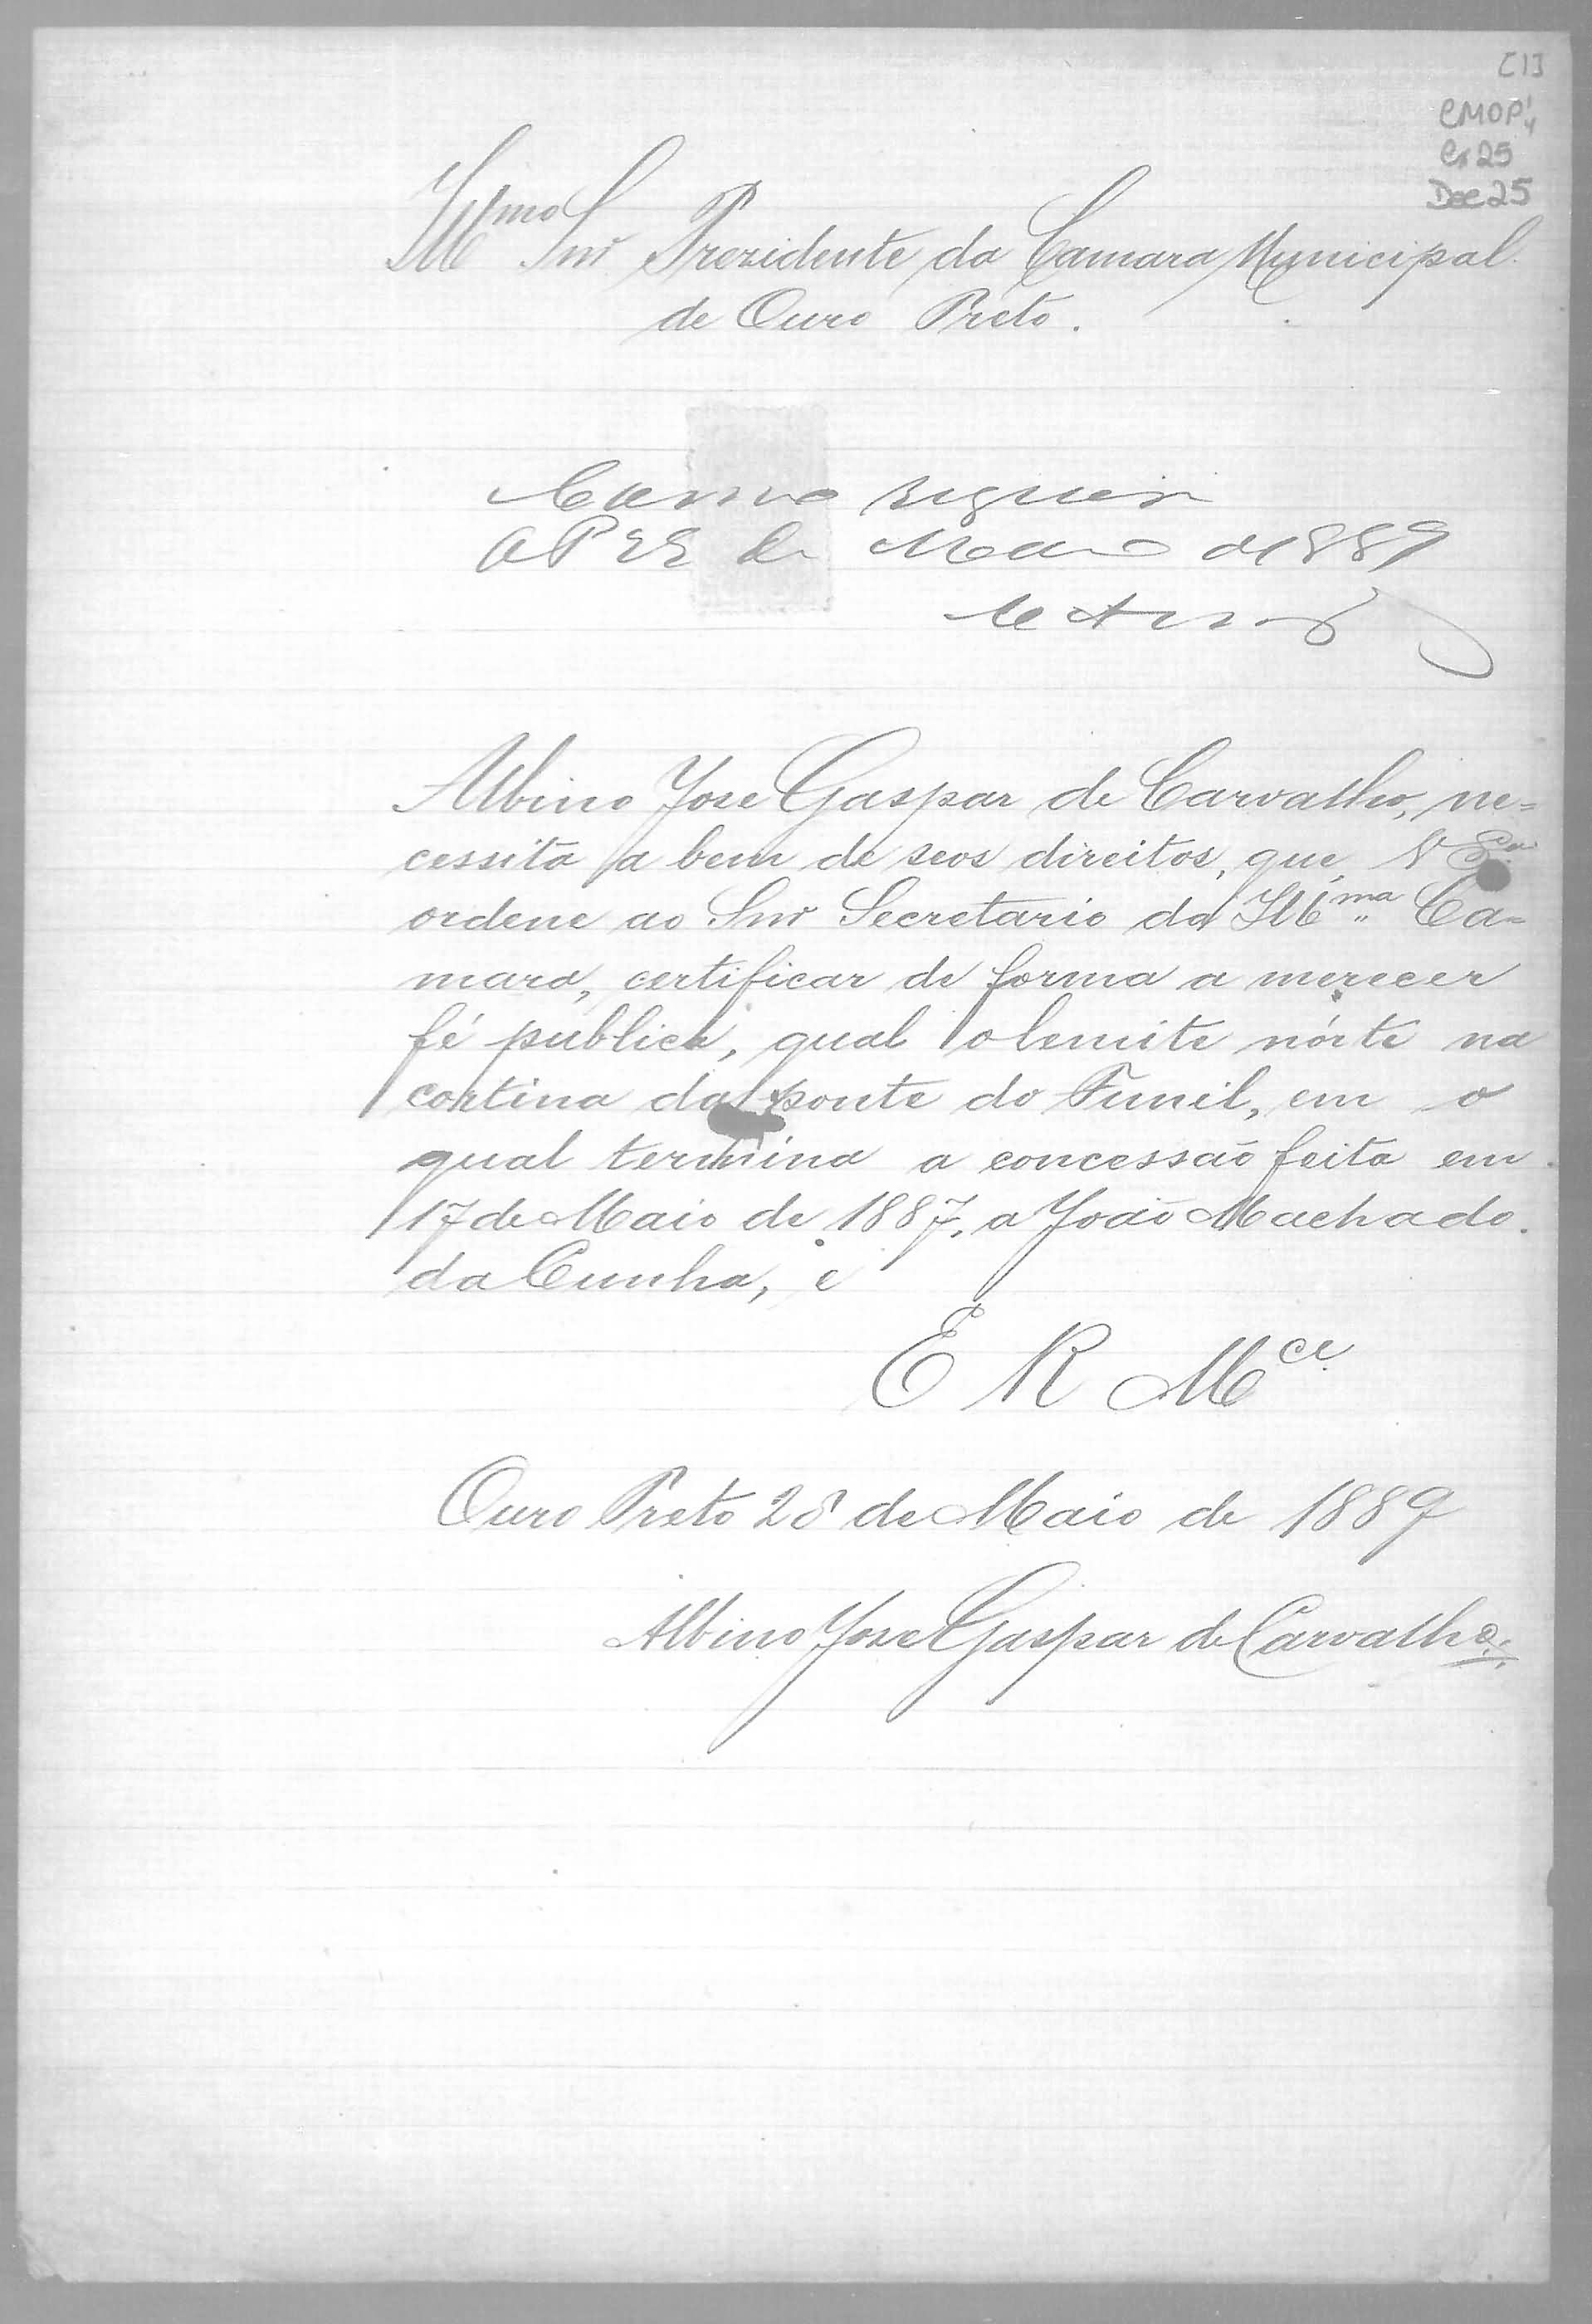 [1]
CMOP
Cx 25
Doc 25
Illmo Snr Prezidente da Camara Municipal
de Ouro Preto.
Como requer
OP 28 de Maio de 1889
Albino Jose Gaspar de Carvalho, ne=
cessita a bem de seos direitos, que, V Ecia
ordene ao Snr Secretario da Illma Ca=
mara, certificar de forma a merecer
fé publica, qual o lemite nórte na
cortina da ponte do Funil, em o
qual termina a concessão feita em
17 de Maio de 1887, a João Machado
da Cunha, e
E R Mce
Ouro Preto 28 de Maio de 1889
Albino Jose Gaspar de Carvalho